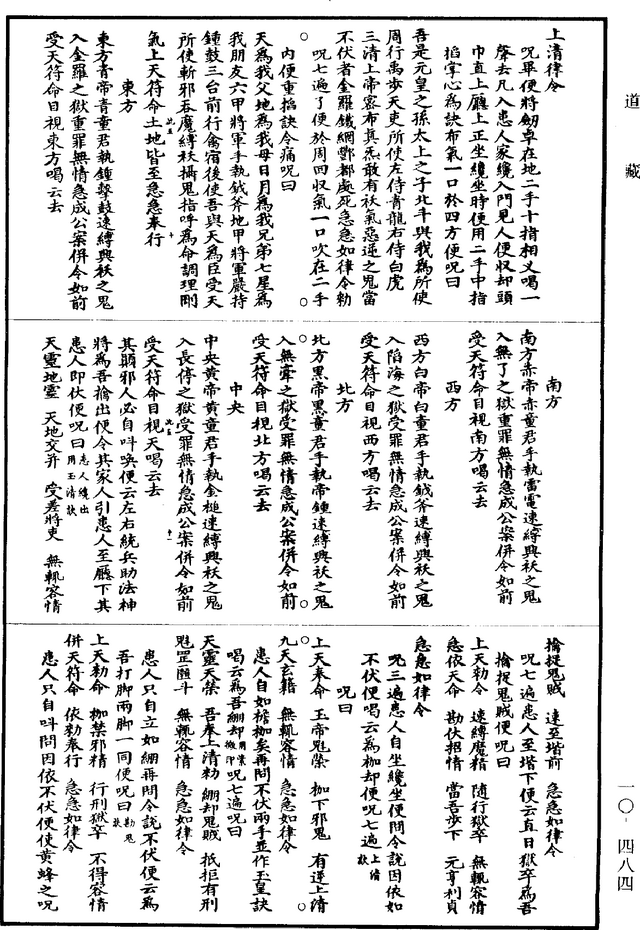 道藏
上清律令
呪畢便將劒卓在地二手十指相乂喝一
聲去凡入患人家纔入門見人便収却頭
巾直上廳上正坐纔坐時便用二手中指
掐掌心為訣布氣一口於四方便呪曰
吾是元皇之孫太上之子北斗與我為所使
周行禹步天吏所使左侍青龍右侍白虎
三清上帝容布真炁敢有袄氣惡逆之鬼當
不伏者金羅鐵網酆都處死急急如律令勑
呪七遍了便於周回収氣一口吹在二手
内便重掐訣令痛呪曰
天為我父地為我母日月為我兄弟七星為
我朋友六甲將軍手執鉞斧地甲將軍嚴持
鍾鼓三台前行禽宿後使吾與天為臣受天
所使斬邪吞魔縛袄攝鬼指呼為命調理剛
氣上天符命土地皆至急急奉行
東方
東方青帝青童君執鍾擊鼓速縛興袄之鬼
入金羅之獄重罪無情急成公案併令如前
受天符命目視東方喝云去
南方
南方赤帝赤童君手執雷電速縛興袄之鬼
入無了之獄重罪無情急成公案併令如前
受天符命目視南方喝云去
西方
西方白帝白童君手執鉞斧速縛興袄之鬼
入陷海之獄受罪無情急成公案併令如前
受天符命目視西方喝云去
北方
北方黑帝黑童君手執帝鍾速縛興袄之鬼
入無牽之獄受罪無情急成公案併令如前
受天符命目視北方喝云去
中央
中央黄帝黄童君手執金槌速縛興袄之鬼
入長停之獄受罪無情急成公案併令如前
受天符命目視天喝云去
其顯邪人必自叫喚便云左右統兵助法神
將為吾擒出便令其家人引患人至廳下其
患人即伏便呪曰患人纔出用玉清訣
天靈地靈　天地交并　受差將吏　無輒容情
擒捉鬼賊　速至堦前　急急如律令
呪七遍患人至堦下便云直日獄卒為吾
擒捉鬼賊便呪曰
上天勑令　速縛魔精　隨行獄卒　無輒容情
急依天命　勘伏招情　當吾步下　元亨利貞
急急如律令
呪三遍患人自坐纔坐便問令說因依如
不伏便喝云為枷却便呪七遍上清訣
呪曰
上天奉命　玉帝鬼榮　枷下邪鬼　有逆上清
九天玄籍　無輒容情　急急如律令
患人自如擔枷矣再問不伏兩手並作玉皇訣
喝云為吾綳却用紫微印呪七遍呪曰
天靈天榮　吾奉上清勑　綳却鬼賊　抵拒有刑
魁罡𩲃斗　無輒容情　急急如律令
患人只自立如綳再問令說不伏便云為
吾打脚兩脚一同便呪曰勘鬼訣
上天勑命　枷禁邪精　行刑獄卒　不得容情
併天符命　依勑奉行　急急如律令
患人只自叫問因依不伏便使黄蜂之呪
一〇·四八四